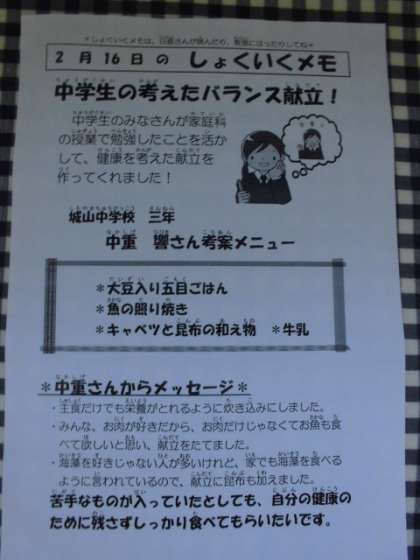 ＊しょくいくメモは、日直さんが読んだり、教室にはったりしてね＊
2月16日の しょくいくメモ
中学生の考えたバランス献立！
中学生のみなさんが家庭科
の授業で勉強したことを活か
して、健康を考えた献立を
作ってくれました！
城山中学校 三年
中重 響さん考案メニュー
＊大豆入り五目ごはん
＊魚の照り焼き
＊キャベツと昆布の和え物 ＊牛乳
＊中重さんからメッセージ＊
・主食だけでも栄養がとれるように炊き込みにしました。
・みんな、お肉が好きだから、お肉だけじゃなくてお魚も食
べて欲しいと思い、献立をたてました。
・海藻を好きじゃない人が多いけれど、家でも海藻を食べる
ように言われているので、献立に昆布も加えました。
苦手なものが入っていたとしても、自分の健康の
ために残さずしっかり食べてもらいたいです。